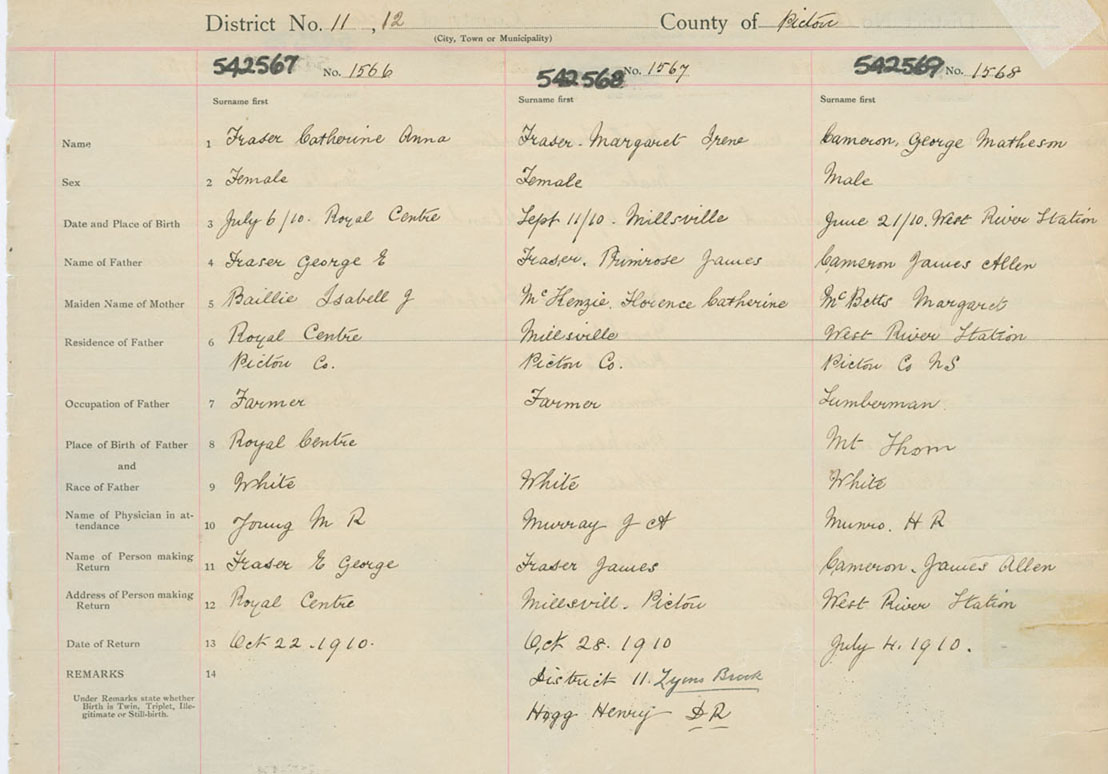 District No. 11, 12 County of Pictou
(City, Town or Municipality)
542567 No. 1566 542568 No. 1567 542569 No. 1568
Surname first Surname first Surname first
Name 1 Fraser Catherine Anna Fraser. Margaret Irene Cameron, George Matheson
Sex 2 Female Female Male
Date and Place of Birth 3 July 6/10. Royal Centre Sept 11/10. Millsville June 21/10. West River Station
Name of Father 4 Fraser George E Fraser. Primrose James Cameron James Allen
Maiden Name of Mother 5 Baillie Isabell J McKenzie. Florence Catherine McBetts Margaret
Residence of Father 6 Royal Centre Millsville West River Station
Pictou Co. Pictou Co. Pictou Co NS
Occupation of Father 7 Farmer Farmer Lumberman
Place of Birth of Father 8 Royal Centre Mt Thom
and
Race of Father 9 White White White
Name of Physician in at-
tendance 10 Young M R Murray J A Munro. H R
Name of Person making
Return 11 Fraser E George Fraser James Cameron. James Allen
Address of Person making
Return 12 Royal Centre Millsvill. Pictou West River Station
Date of Return 13 Oct 22.1910. Oct 28.1910 July 4.1910.
REMARKS 14 District 11. Lyons Brook
Under Remarks state whether
Birth is Twin, Triplet, Ille-
gitimate or Still-birth.
Hogg Henry DR